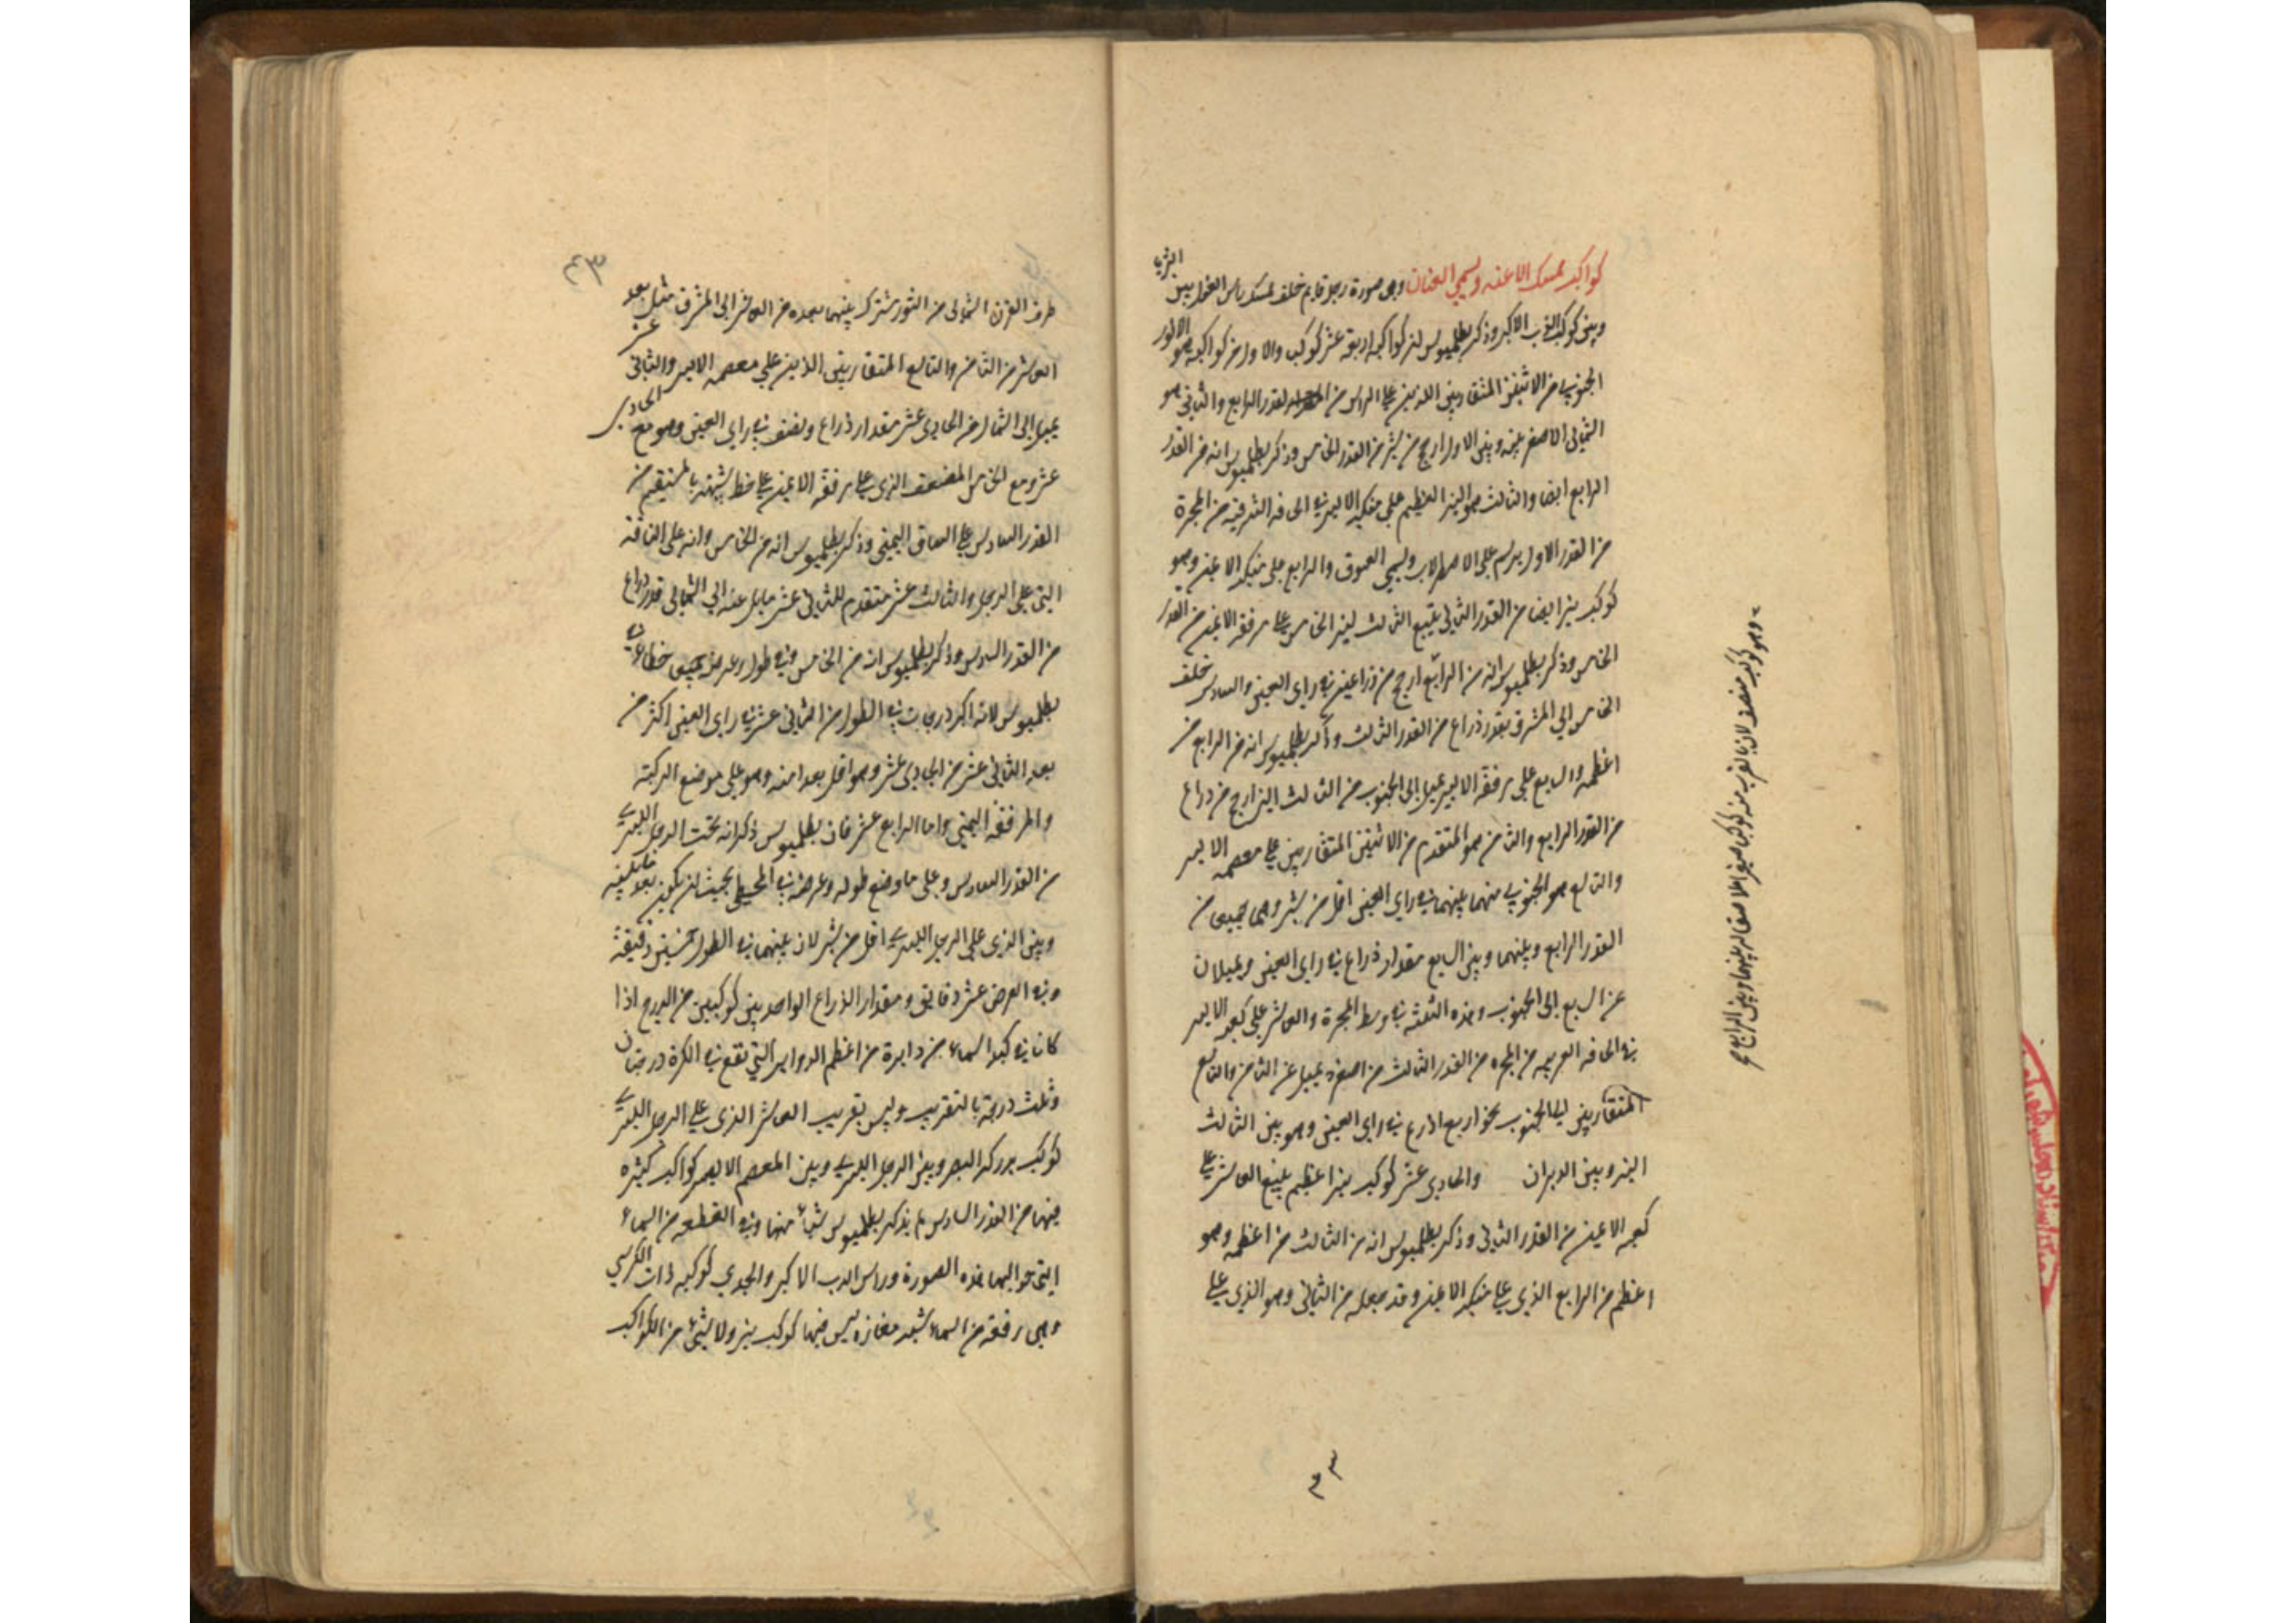 كواكب ممسك الاعنه ويسمى العنان وهى صورة رجل قايم خلف ممسك راس الغول بين الثريا
وبين كوكب الدب الاكبر وذكر بطلميوس ان كواكبه اربعة عشر كوكب والاول من كواكبه هو
الجنوبي من الاثنين المتقاربين اللذين على الراس من القدر الرابع والثاني هو
الشمالى الاصغر بينه وبين الاول ارجح من شبر من القدر الخامس وذكر بطلميوس انه من القدر
الرابع ايضا والثالث هو النير العظيم على منكبه الايسر في الحافة الشرقية من المجرة
من القدر الاول يرسم على الاصطرلاب ويسمى العيوق والرابع على منكبه الايمن وهو
كوكب نير ايضا من القدر الثاني يتبع الثالث النير الخامس على مرفقه الايمن من القدر
الخامس وذكر بطلميوس انه من الرابع ارجح من ذراعين في راى العين والسادس خلف
الخامس الى المشرق بقدر ذراع من القدر الثالث وذكر بطلميوس انه من الرابع من
اعظمه والسابع على مرفقه الايسر يميل الى الجنوب من الثالث النير ارجح من ذراع
من القدر الرابع والثامن هو المتقدم من الاثنين المتقاربين على معصمه الايسر
والتاسع هو الجنوبي منهما بينهما في راى العين اقل من شبر وهما جميعا من
القدر الرابع وبينهما وبين السابع مقدار ذراع في راى العين ويميلان
عن السابع الى الجنوب وهذه الثلثة في وسط المجرة والعاشر على كعبه الايسر
في الحافه الغربيه من المجره من القدر الثالث من اصغره يميل عن الثامن والتاسع
المتقاربين الى الجنوب نحو اربع اذرع في راى العين وهو بين الثالث
النير وبين الدبران والحادي عشر كوكب نير اعظم يتبع العاشر على
كعبه الايمن من القدر الثاني وذكر بطلميوس انه من الثالث من اعظمه وهو
اعظم من الرابع الذي على منكبه الايمن وقد جعله من الثاني وهو الذي على
وهو كوكب مضعف لان بالقرب منه كوكب صغير
٤٣
طرف القرن الشمالى من الثور مشترك بينهما بعده من العاشر الى المشرق مثل بعد
العاشر من الثامن والتاسع المتقاربين الذين على معصمه الايسر والثاني عشر
يميل الى الشمال من الحادى عشر مقدار ذراع ونصف في راى العين وهو مع الحادى
عشر ومع الخامس المضعف الذى على مرفقه الايمن على خط شبيه بالمستقيم من
القدر السادس على الساق اليمنى وذكر بطلميوس انه من الخامس وانه على
التى على الرجل والثالث عشر متقدم للثاني عشر مايل عنه الى الشمال قدر ذراع
من القدر السادس وذكر بطلميوس انه من الخامس وفي طوله وعرضه جميعا خطا في
بطلميوس لانه اكبر درجات في الطول من الثاني عشر وفي راى العين اكثر من
بعد الثاني عشر من الحادى عشر وهو اقل بعدا منه وهو على موضع الركبة
والمرفقة اليمنى واما الرابع عشر فان بطلميوس ذكر انه تحت الرجل اليسرى
من القدر السادس وعلى ما وضع طوله وعرضه في المجسطى يجب ان يكون بعد ما بينه
وبين الذى على الرجل اليسرى اقل من شبر لان بينهما في الطول خمسين دقيقة
وفي العرض عشر دقايق ومقدار الذراع الواحد بين كوكبين من الدرج اذا
كانا في كبد السماء من دايرة من اعظم الدواير التي تقع في الكرة درجتان
وثلث درجة بالتقريب وليس بقرب العاشر الذى على الرجل اليسرى
كوكب يدركه البصر وبين الرجل اليسرى وبين المعصم الايسر كواكب كثيره
منها من القدر السادس لم يذكر بطلميوس شيئا منها وفي القطعه من السماء
التى حواليها هذه الصورة وراس الدب الاكبر والجدي كوكبه ذات الكرسي
وهى رقعة من السماء تشبه مفازه ليس فيها كوكب نير ولا شئ من الكواكب